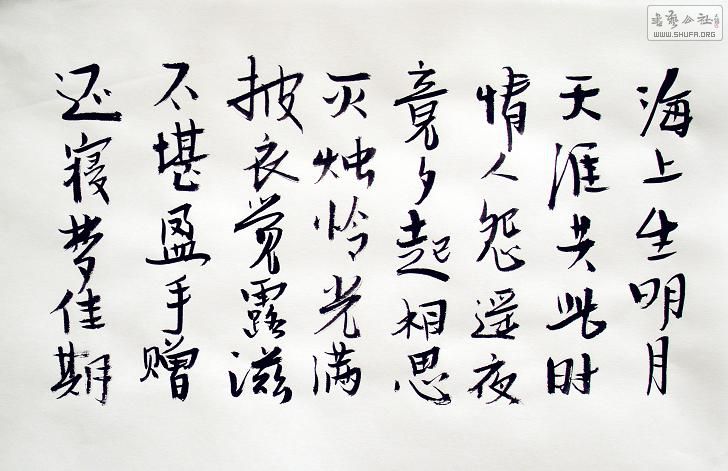 海上生明月
天涯共此时
情人怨遥夜
竟夕起相思
灭烛怜光满
披衣觉露滋
不堪盈手赠
还寝梦佳期
书艺公社
WWW.SHUFA.ORG